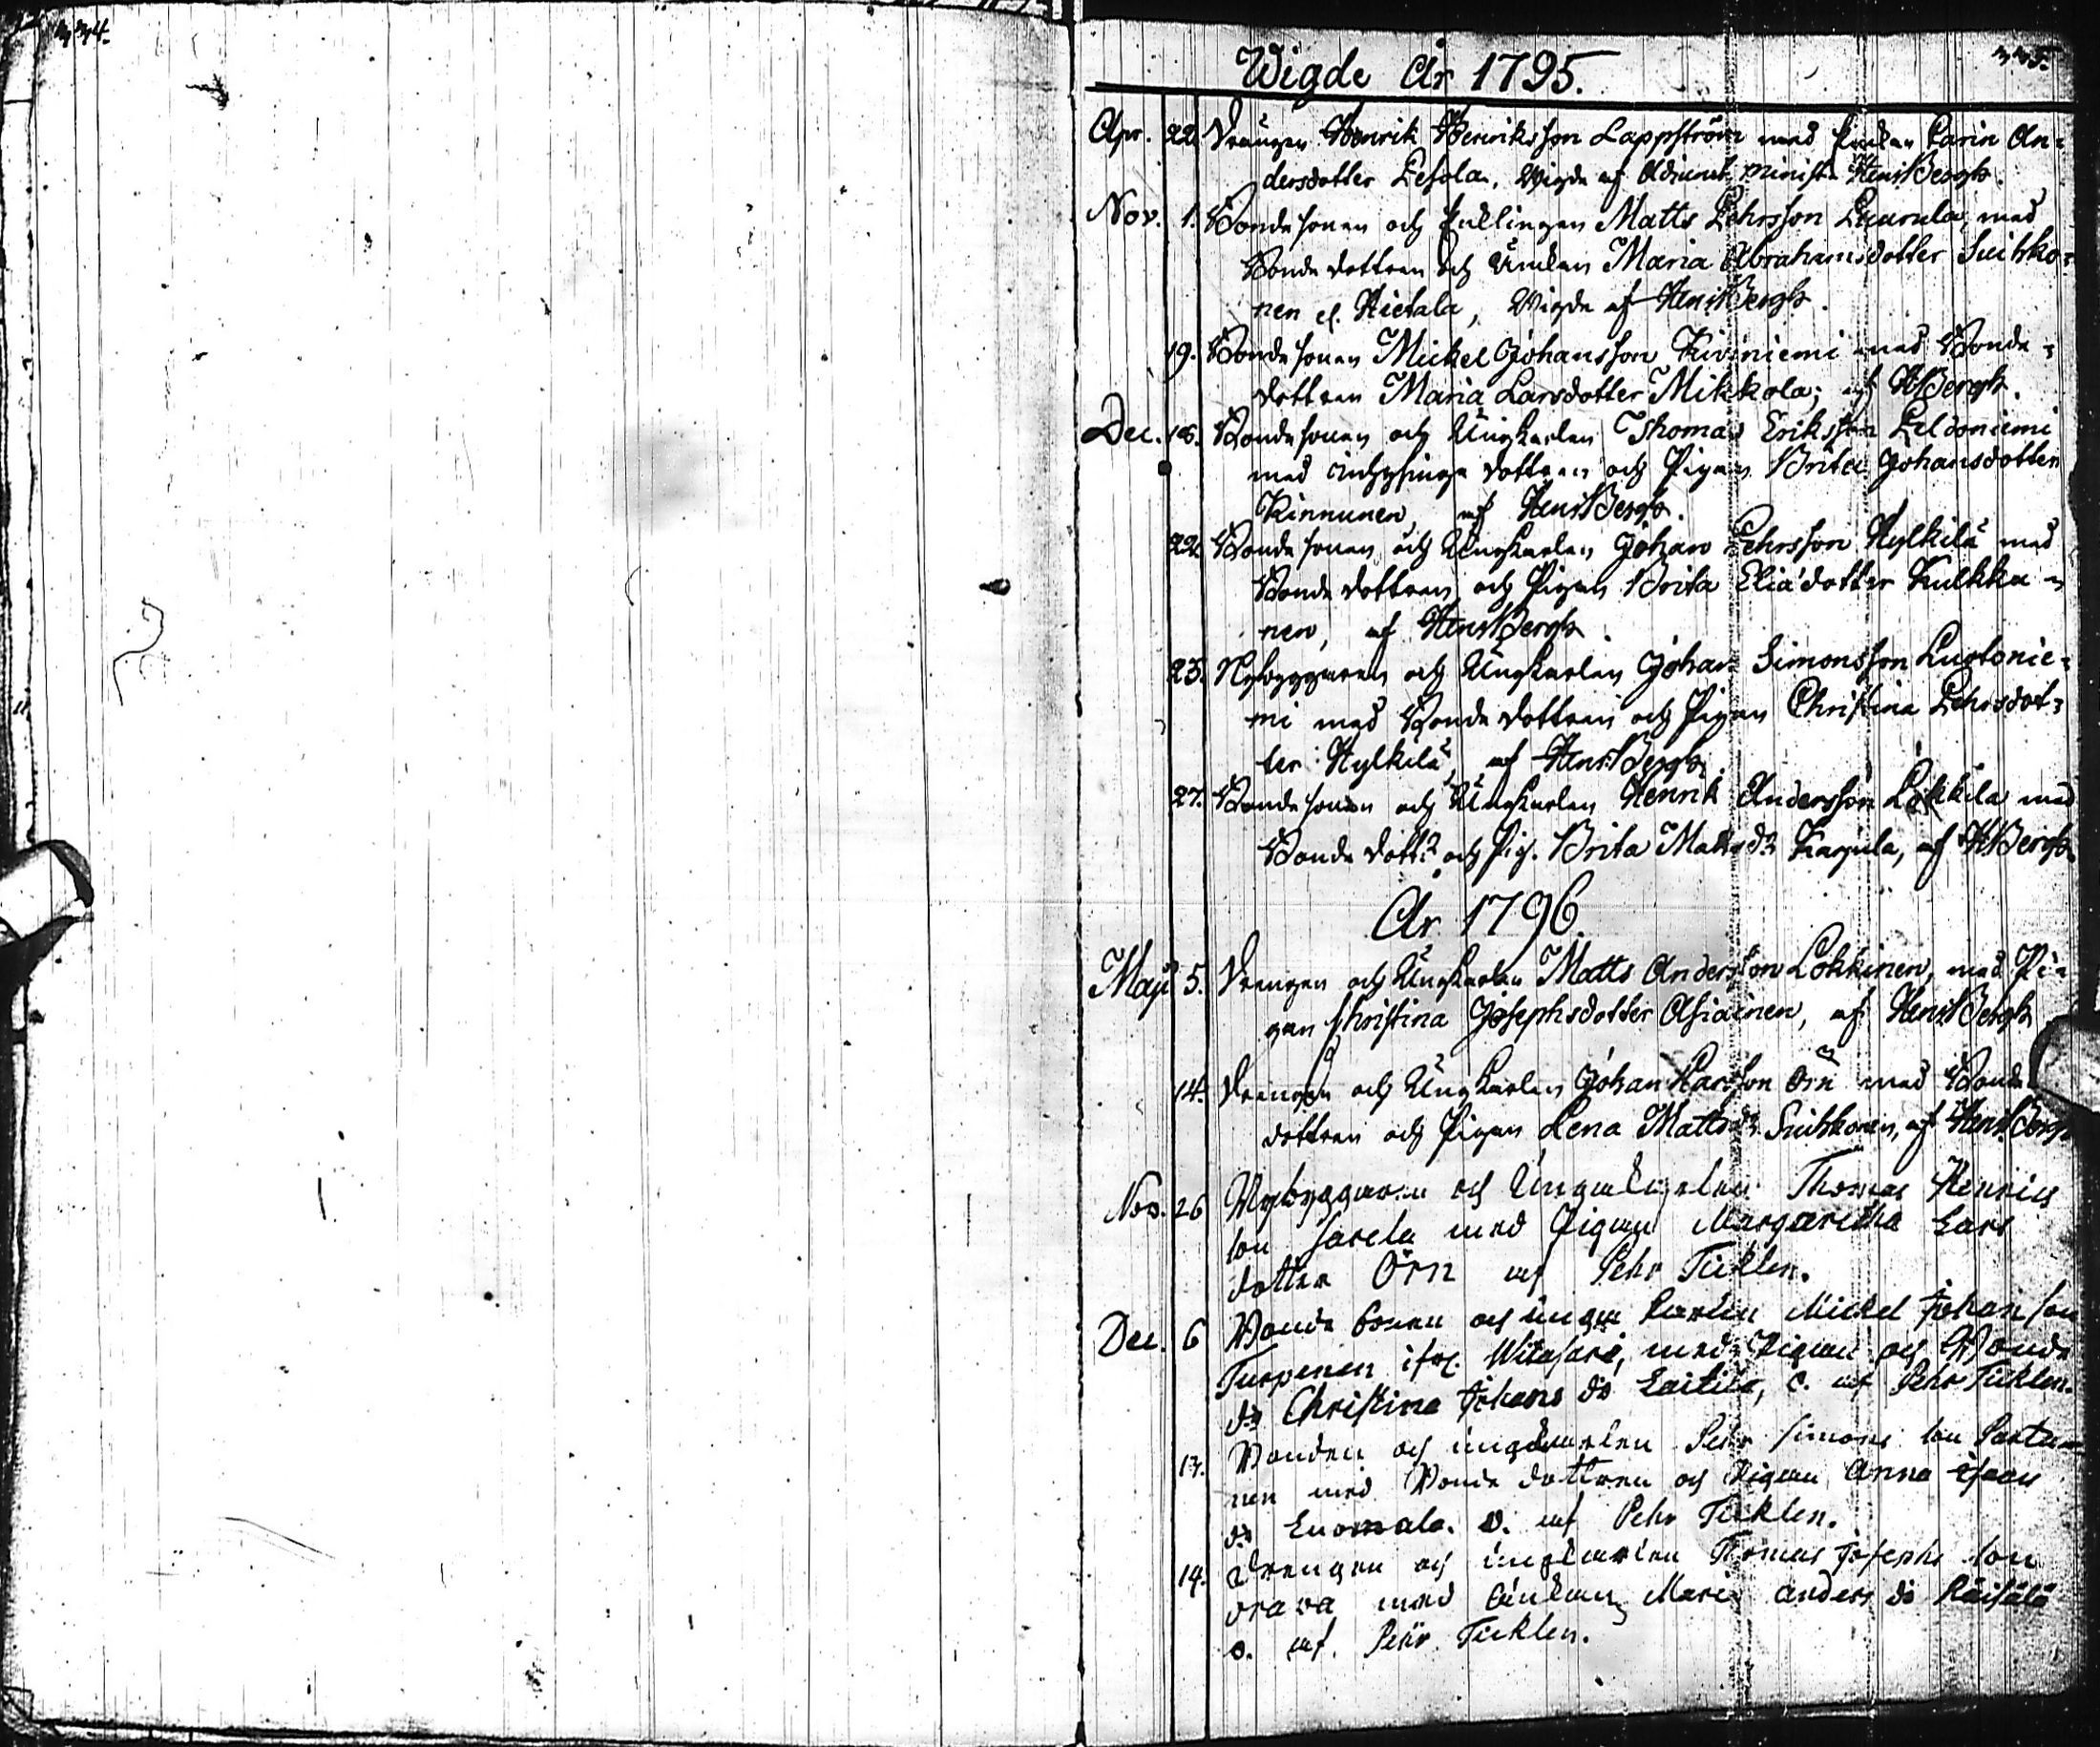 334.
335.
Wigde År 1795.
Apr. 22. Drängen Henrik Henriksson Lappström med Enkan Karin An=
dersdotter Lesola, Wigde af Adjunct. minist. Hens. Bergh.
Nov. 1. Bondesonen och Enklingen Matts Pehrsson Laurula, med
Bondedottren och Enkan Maria Abrahamsdotter Suihko=
nen el. Hietala, Wigde af Hens. Bergh.
19. Bondesonen Mickel Johansson Kiviniemi med Bonde=
dottren Maria Larsdotter Mikkola; af H Bergh.
Dec. 18. Bondesonen och Ungkarlen Thomas Eriksson Peldoniemi
med Inhysinge dottren och Pigan Brita Johansdotter
Kinnunen af Hens. Bergh.
22. Bondesonen och Ungkarlen Johan Pehrsson Hylkilä med
Bondedottren och Pigan Brita Eliædotter Kulkka=
nen, af Hens. Bergh.
23. Nybyggaren och Ungkarlen Johan Simonsson Luotonie=
mi med Bondedottren och Pigan Christina Pehrsdot=
ter Hylkilä af Hens. Bergh.
27. Bondesonen och Ungkarlen Henrik Andersson Lökkila med
Bonde dottr och Pig. Brita Mattsdr Karjula, af H Bergh
År 1796.
Maji 5. Drengen och Ungkarlen Matts Andersson Lohkinen, med Pi=
gan Christina Josephsdotter Asiainen, af Hens. Bergh
14. Drengen och Ungkarlen Johan Larsson Örn med Bonde
dottren och Pigan Lena Mattsdr Suihkonen, af Hens. Bergh
Nov. 26 Nybyggaren och Ungakarlen Thomas Henrics
son Sarela med Pigan Margaretha Lars
dotter Örn af Pehr Ticklen.
Dec. 6 Bonde Sonen och unga Karlen Mickel Johan son
Turpenen ifr. Witasari, med Pigan och Bonde
dr Christina Johans dr Laitila, c. af Pehr Ticklen.
13. Bonden och ungkarlen Pehr Simons son Parta=
nen med Bonde dottren och Pigan Anna Isacs
dr Luomala. v. af Pehr Ticklen.
14. Drengen och ungkarlen Thomas Josephs son
Orava med Enkan Maria Anders dr Räisälä
v. af. Pehr Ticklen.